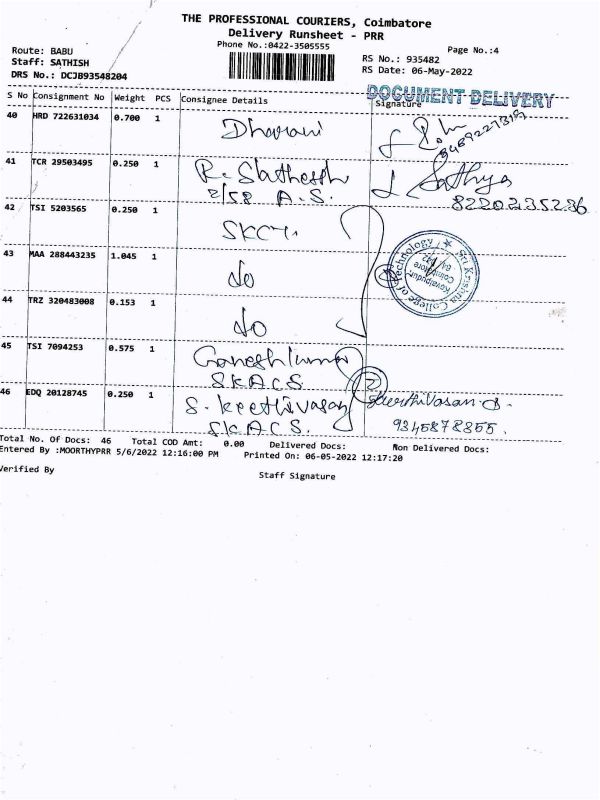 THE PROFESSIONAL COURIERS, Coimbatore
Delivery Runsheet - PRR
Phone No.:0422-3505555
Page No.:4
Route: BABU
Staff: SATHISH
DRS No.: DCJB93548204
RS No.: 935482
RS Date: 06-May-2022
DOCUMENT DELIVERY
S No Consignment No Weight PCS Consignee Details Signature
40 HRD 722631034 0.700 1 Dharani
41 TCR 29503495 0.250 1 R. Sathesh Sathya
2/58 A.S. 8220235236
42 TSI 5203565 0.250 1 SKCT
Sri Krishna College of Technology
Kovaipudur,
Coimbatore
43 MAA 288443235 1.045 1 do
44 TRZ 320483008 0.153 1 do
45 TSI 7094253 0.575 1 Ganeshkumar
SKACS
2
46 EDQ 20128745 0.250 1 S. Keerthivasan Keerthivasan.S.
SKACS. 9345878855.
Total No. Of Docs: 46 Total COD Amt: 0.00 Delivered Docs: Non Delivered Docs:
Entered By :MOORTHYPRR 5/6/2022 12:16:00 PM Printed On: 06-05-2022 12:17:20
Verified By Staff Signature